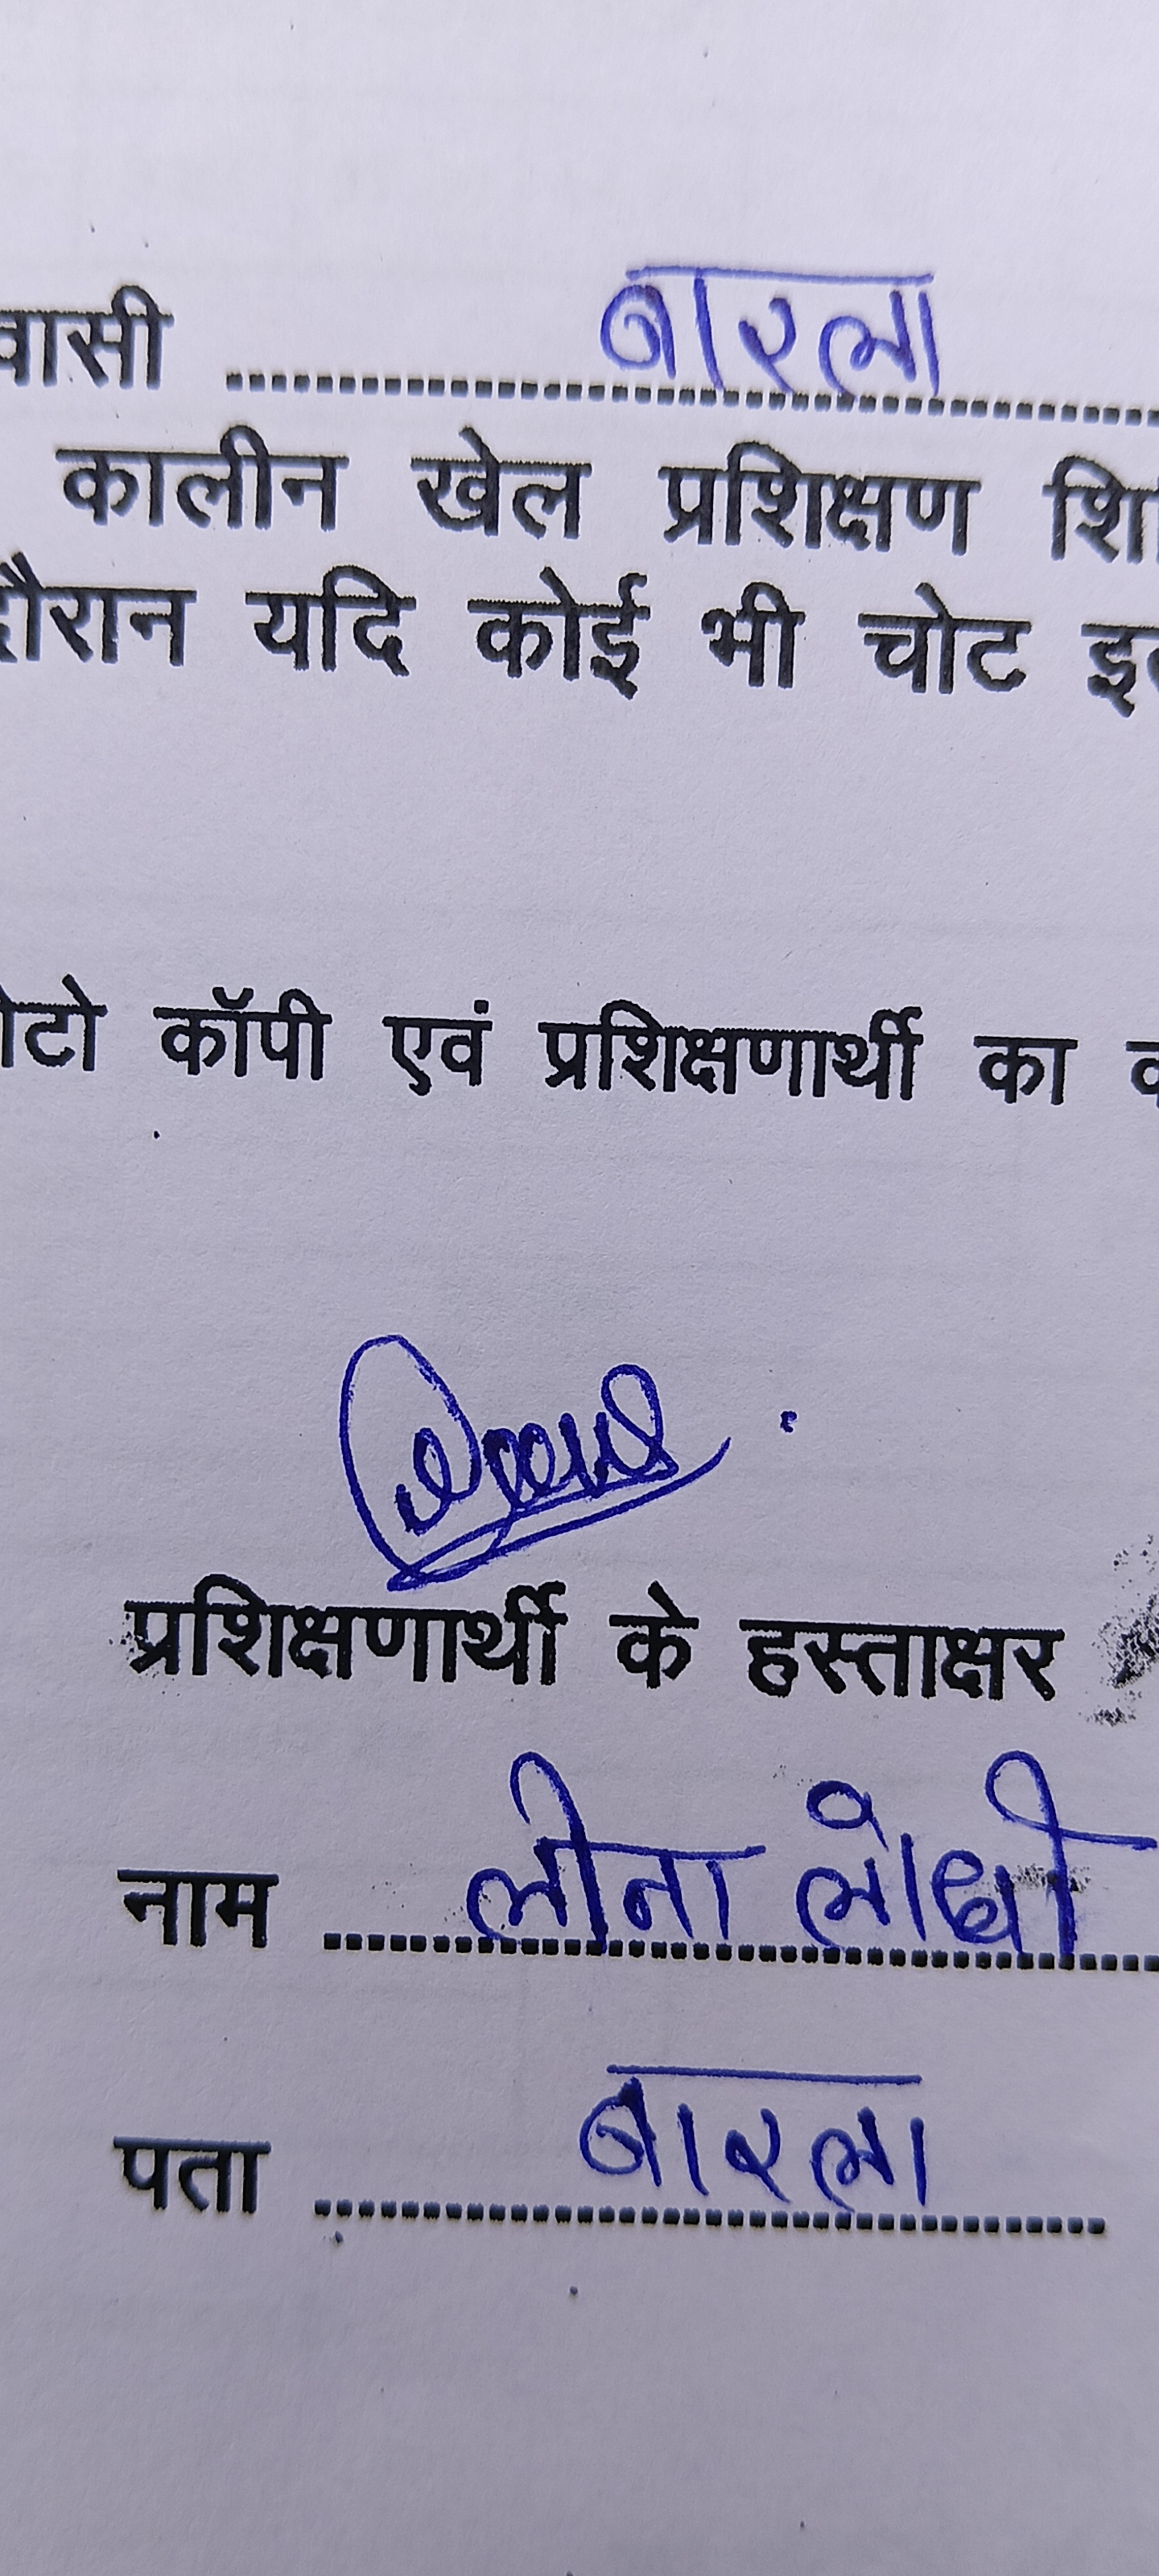 वासी ........ बारला ........
कालीन खेल प्रशिक्षण
दौरान यदि कोई भी चोट
कॉपी एवं प्रशिक्षणार्थी का
प्रशिक्षणार्थी के हस्ताक्षर
नाम ........ लीना लोधी ........
पता ........ बारला ........